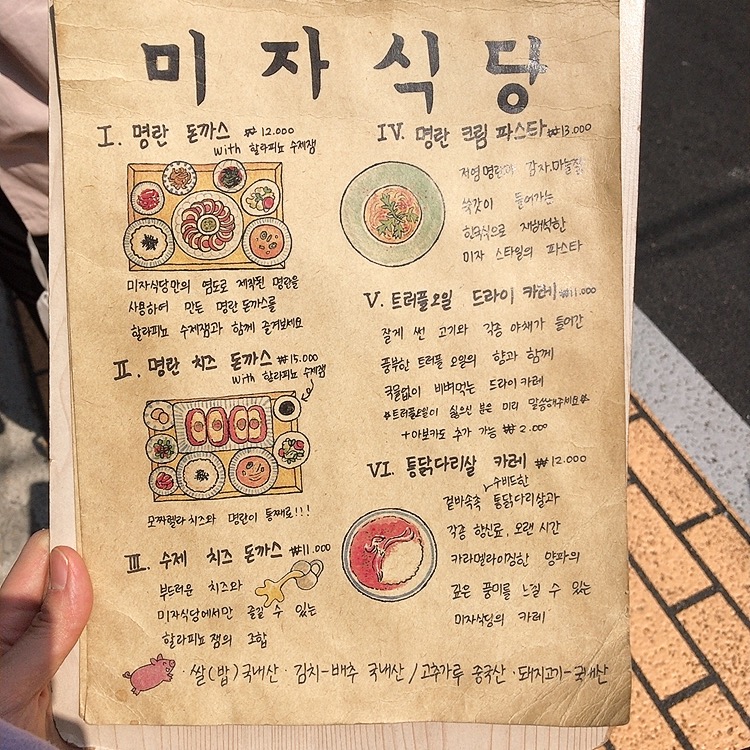 미자식당
I. 명란 돈까스 ₩12.000
with 할라피뇨 수제잼
미자식당만의 염도로 제작된 명란을
사용하여 만든 명란 돈까스를
할라피뇨 수제잼과 함께 즐겨보세요
II. 명란 치즈 돈까스 ₩15.000
with 할라피뇨 수제잼
모짜렐라 치즈와 명란이 통째로!!!
III. 수제 치즈 돈까스 ₩11.000
부드러운 치즈와
미자식당에서만 즐길 수 있는
할라피뇨 잼의 조합
IV. 명란 크림 파스타 ₩13.000
저염 명란과 감자,마늘쫑
쑥갓이 들어가는
한국식으로 재해석한
미자 스타일의 파스타
V. 트러플오일 드라이 카레 ₩11.000
잘게 썬 고기와 각종 야채가 들어간
풍부한 트러플 오일의 향과 함께
국물없이 비벼먹는 드라이 카레
*트러플오일이 싫으신 분은 미리 말씀해주세요*
+아보카도 추가 가능 ₩2.000
VI. 통닭다리살 카레 ₩12.000
수비드한
겉바속촉 통닭다리살과
각종 향신료, 오랜 시간
카라멜라이징한 양파의
깊은 풍미를 느낄 수 있는
미자식당의 카레
·쌀(밥)국내산 · 김치-배추 국내산/고추가루 중국산 ·돼지고기-국내산